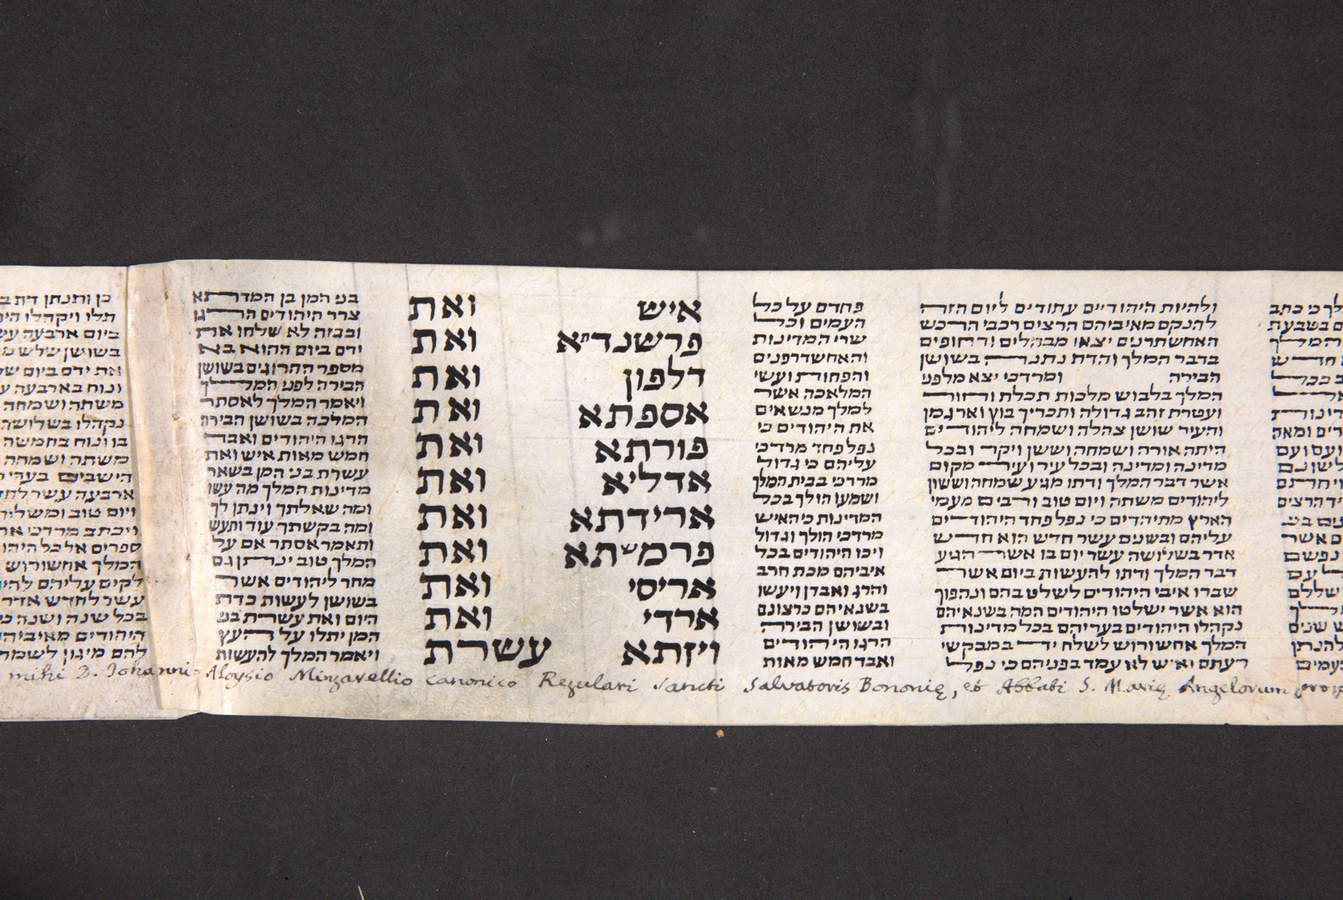 ולהיות היהודיים עתודים ליום הזה
להנקם מאיביהם הרצים רכבי הרכש
האחשתרנים יצאו מבהלים ודחופים
בדבר המלך והדת נתנה בשושן
הבירה ומרדכי יצא מלפני
המלך בלבוש מלכות תכלת וחור
ועטרת זהב גדולה ותכריך בוץ וארגמן
והעיר שושן צהלה ושמחה ליהודים
היתה אורה ושמחה וששן ויקר ובכל
מדינה ומדינה ובכל עיר ועיר מקום
אשר דבר המלך ודתו מגיע שמחה וששון
ליהודים משתה ויום טוב ורבים מעמי
הארץ מתיהדים כי נפל פחד היהודים
עליהם ובשנים עשר חדש הוא חדש
אדר בשלושה עשר יום בו אשר הגיע
דבר המלך ודתו להעשות ביום אשר
שברו איבי היהודים לשלט בהם ונהפוך
הוא אשר ישלטו היהודים המה בשנאיהם
נקהלו היהודים בעריהם בכל מדינות
המלך אחשורוש לשלח יד במבקשי
רעתם ואיש לא עמד בפניהם כי נפל
פחדם על כל
העמים וכל
שרי המדינות
והאחשדרפנים
והפחות ועשי
המלאכה אשר
למלך מנשאים
את היהודים כי
נפל פחד מרדכי
עליהם כי גדול
מרדכי בבית המלך
ושמעו הולך בכל
המדינות כי האיש
מרדכי הולך וגדול
ויכו היהודים בכל
איביהם מכת חרב
והרג ואבדן ויעשו
בשנאיהם כרצונם
ובשושן הבירה
הרגו היהודים
ואבד חמש מאות
איש ואת
פרשנדתא ואת
דלפון ואת
אספתא ואת
פורתא ואת
אדליא ואת
ארידתא ואת
פרמשתא ואת
אריסי ואת
ארדי ואת
ויזתא עשרת
בני המן בן המדתא
צרר היהודים הרגו
ובבזה לא שלחו את
ידם ביום ההוא בא
מספר ההרוגים בשושן
הבירה לפני המלך
ויאמר המלך לאסתר
המלכה בשושן הבירה
הרגו היהודים ואבד
חמש מאות איש ואת
עשרת בני המן בשאר
מדינות המלך מה עשו
ומה שאלתך וינתן לך
ומה בקשתך עוד ותעש
ותאמר אסתר אם על
המלך טוב ינתן גם
מחר ליהודים אשר
בשושן לעשות כדת
היום ואת עשרת בני
המן יתלו על העץ
ויאמר המלך להעשות
כן ותנתן דת
תלו ויקהלו
ביום ארבעה
בשושן שלש
את ידם ביום
ונוח בארבעה
משתה ושמחה
נקהלו בשלושה
בו ונוח בחמשה
משתה ושמחה
הישבים בערי
ארבעה עשר לחדש
ויום טוב ומשלח
ויכתב מרדכי את
ספרים אל כל
המלך אחשורוש
לקים עליהם
עשר לחדש אדר
בכל שנה ושנה
היהודים מאיביהם
להם מיגון לשמחה
mihi D. Johanni-Aloysio Mingarellio canonico Regulari Sancti Salvatoris Bononię, et Abbati S. Marię Angelorum